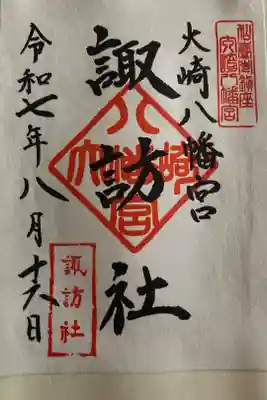 大崎八幡宮
大崎八幡宮
諏訪社
大崎八幡宮
令和七年八月十六日
諏訪社